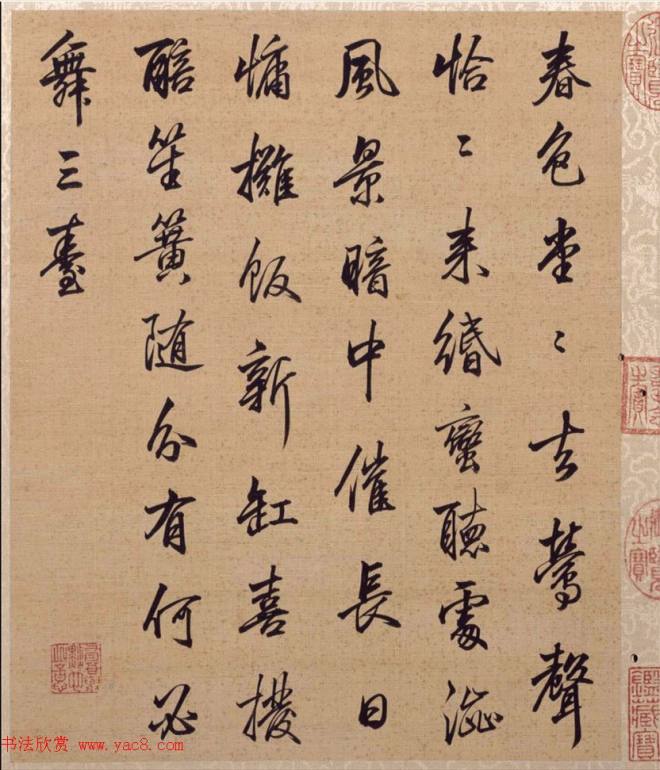 春色堂〻去鶯聲
恰〻来緡蠻聽處澁
風景暗中催長日
慵攤飯新缸喜撥
醅笙簧随分有何必
舞三臺
书法欣赏 www.yac8.com